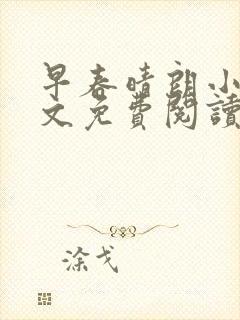 早春晴朗小
文免費閱讀
涂戈